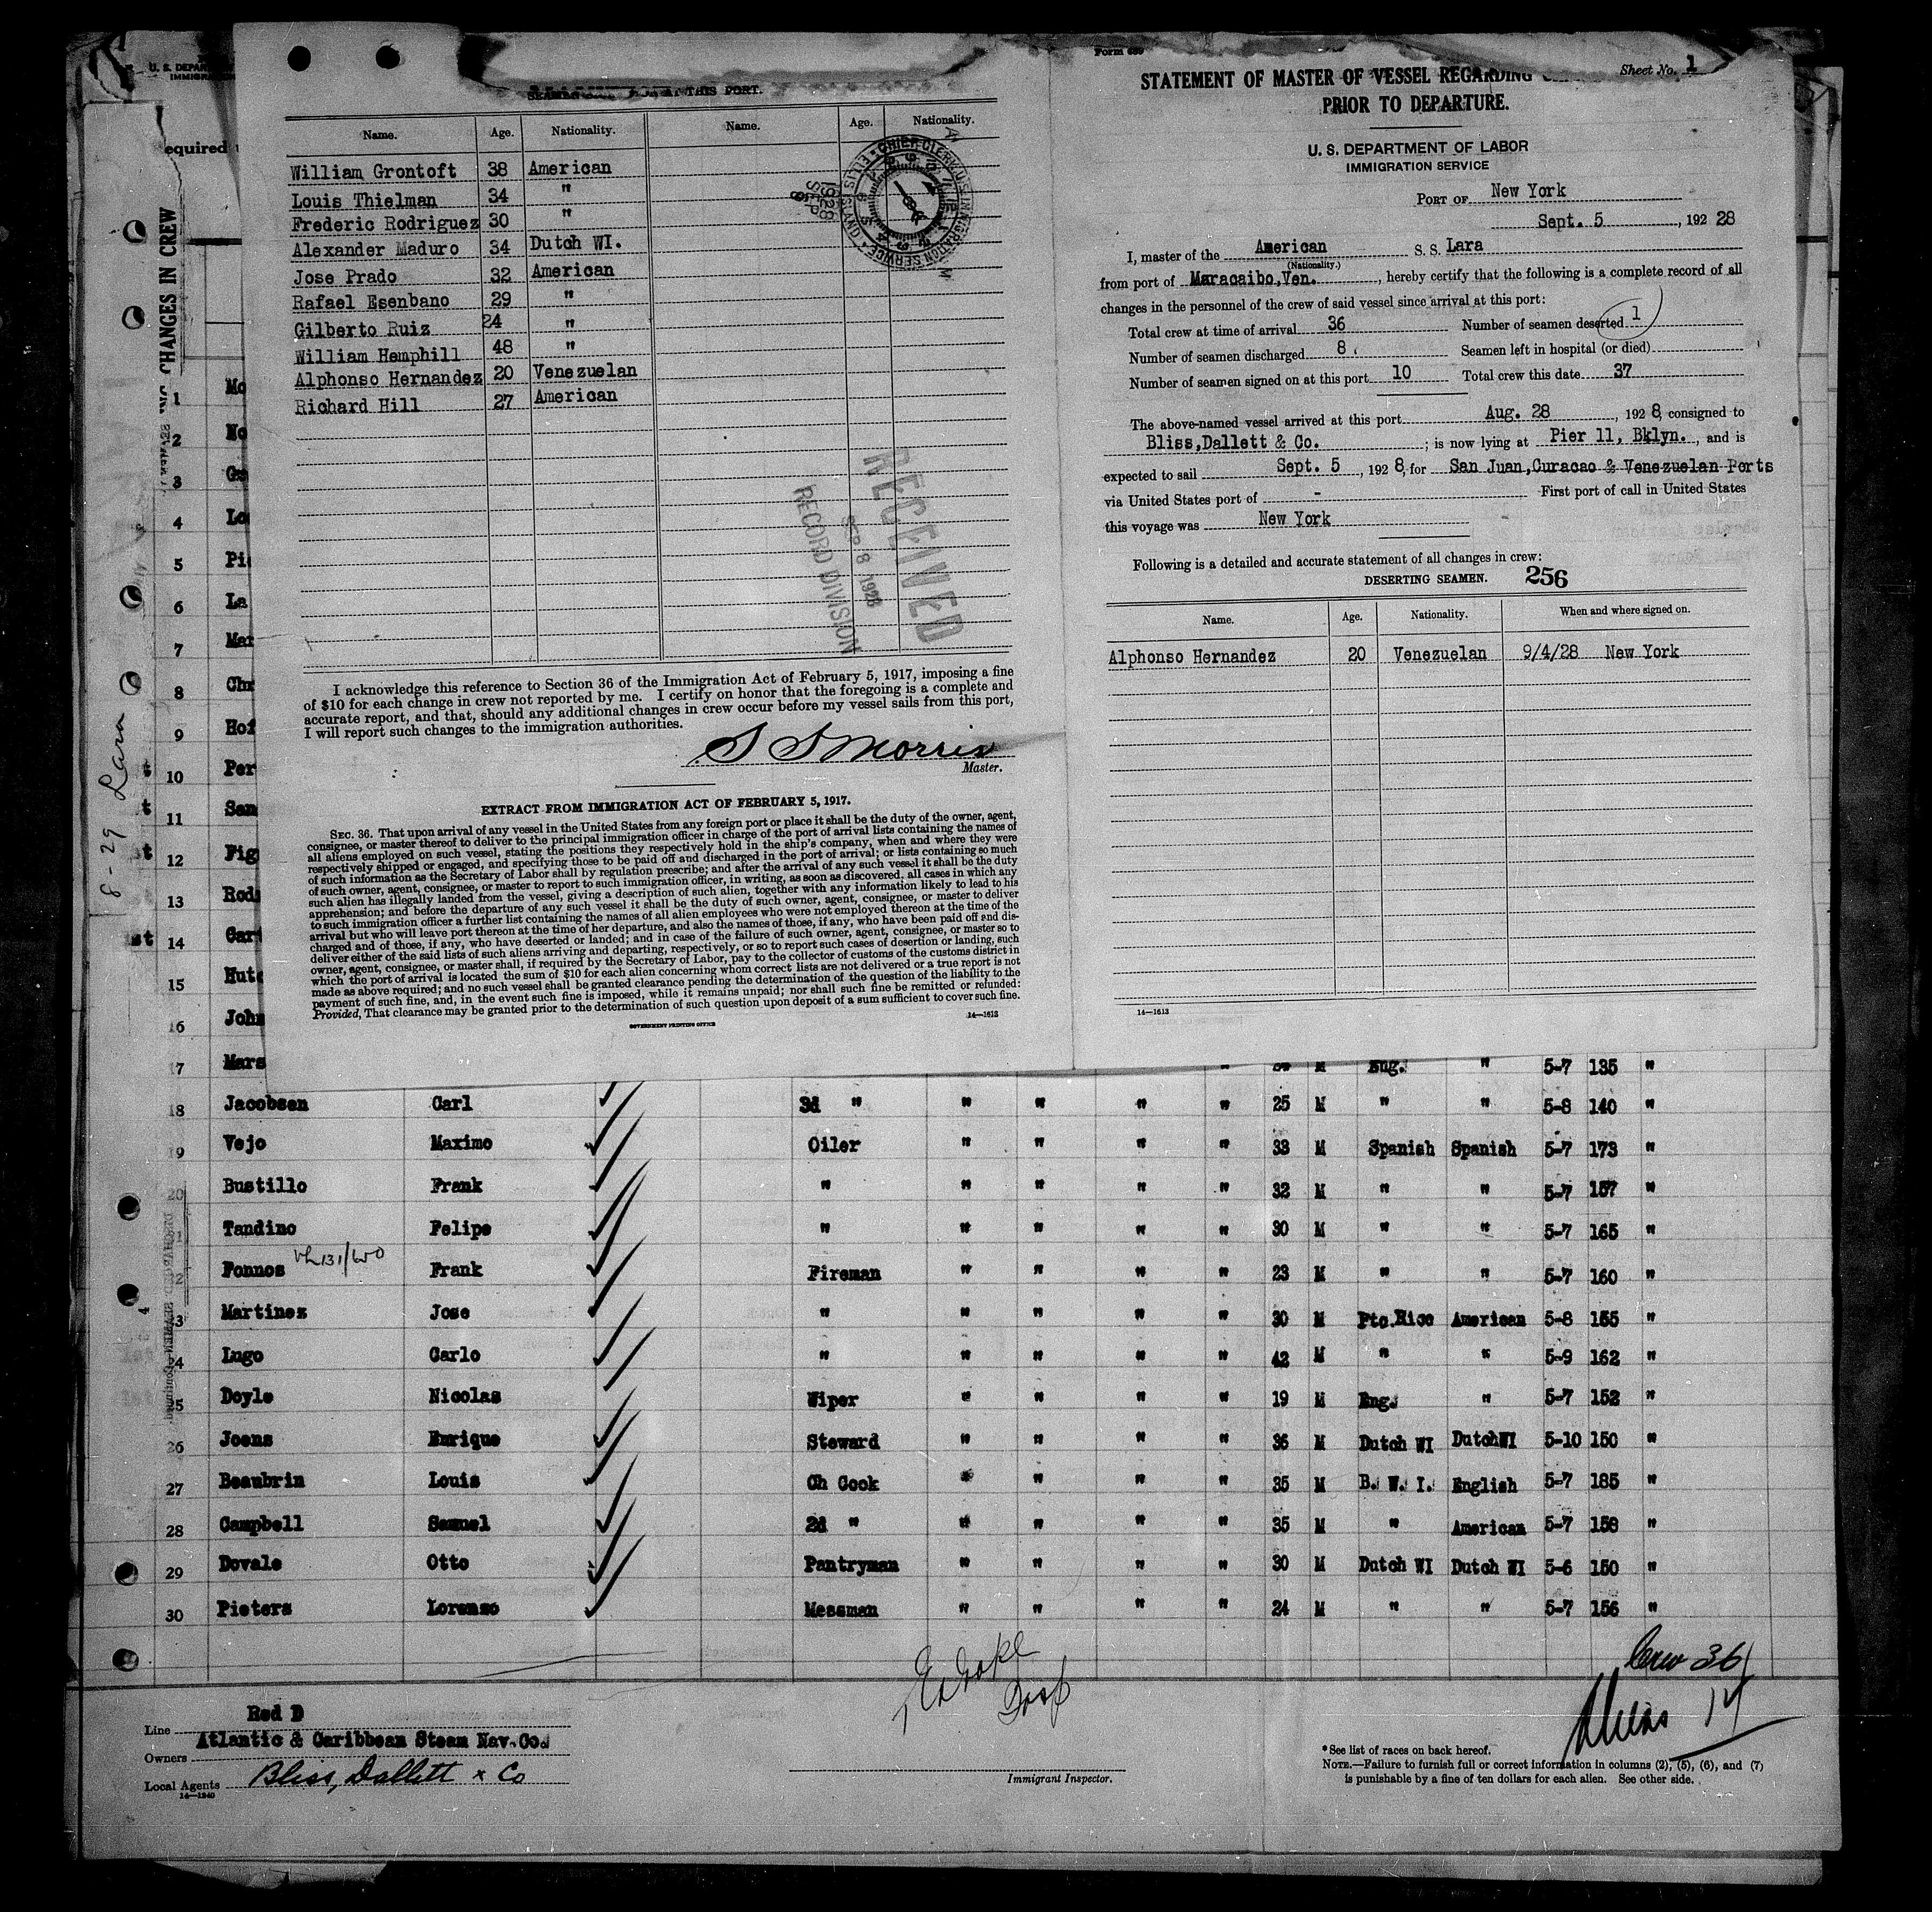 U. S. DEPAR
IMMIGRA
equired
CHANGES IN CREW
8-29 Lara
SEAMEN AT THIS PORT.
Name. Age. Nationality. Name. Age. Nationality.
William Grontoft 38 American
Louis Thielman 34 "
Frederic Rodriguez 30 "
Alexander Maduro 34 Dutch WI.
Jose Prado 32 American
Rafael Esenbano 29 "
Gilberto Ruiz 24 "
William Hemphill 48 "
Alphonso Hernandez 20 Venezuelan
Richard Hill 27 American
CHIEF CLERK IMMIGRATION SERVICE ELLIS ISLAND
1928 SEP
RECEIVED
SEP 8 1928
RECORD DIVISION
I acknowledge this reference to Section 36 of the Immigration Act of February 5, 1917, imposing a fine
of $10 for each change in crew not reported by me. I certify on honor that the foregoing is a complete and
accurate report, and that, should any additional changes in crew occur before my vessel sails from this port,
I will report such changes to the immigration authorities.
S S Morris
Master.
EXTRACT FROM IMMIGRATION ACT OF FEBRUARY 5, 1917.
SEC. 36. That upon arrival of any vessel in the United States from any foreign port or place it shall be the duty of the owner, agent,
consignee, or master thereof to deliver to the principal immigration officer in charge of the port of arrival lists containing the names of
all aliens employed on such vessel, stating the positions they respectively hold in the ship's company, when and where they were
respectively shipped or engaged, and specifying those to be paid off and discharged in the port of arrival; or lists containing so much
of such information as the Secretary of Labor shall by regulation prescribe; and after the arrival of any such vessel it shall be the duty
of such owner, agent, consignee, or master to report to such immigration officer, in writing, as soon as discovered, all cases in which any
such alien has illegally landed from the vessel, giving a description of such alien, together with any information likely to lead to his
apprehension; and before the departure of any such vessel it shall be the duty of such owner, agent, consignee, or master to deliver
to such immigration officer a further list containing the names of all alien employees who were not employed thereon at the time of the
arrival but who will leave port thereon at the time of her departure, and also the names of those, if any, who have been paid off and dis-
charged and of those, if any, who have deserted or landed; and in case of the failure of such owner, agent, consignee, or master so to
deliver either of the said lists of such aliens arriving and departing, respectively, or so to report such cases of desertion or landing, such
owner, agent, consignee, or master shall, if required by the Secretary of Labor, pay to the collector of customs of the customs district in
which the port of arrival is located the sum of $10 for each alien concerning whom correct lists are not delivered or a true report is not
made as above required; and no such vessel shall be granted clearance pending the determination of the question of the liability to the
payment of such fine, and, in the event such fine is imposed, while it remains unpaid; nor shall such fine be remitted or refunded:
Provided, That clearance may be granted prior to the determination of such question upon deposit of a sum sufficient to cover such fine.
GOVERNMENT PRINTING OFFICE 14—1613
Form 689
Sheet No. 1
STATEMENT OF MASTER OF VESSEL REGARDING
PRIOR TO DEPARTURE.
U. S. DEPARTMENT OF LABOR
IMMIGRATION SERVICE
PORT OF New York
Sept. 5, 192 28
I, master of the American S. S. Lara
(Nationality.)
from port of Maracaibo,Ven., hereby certify that the following is a complete record of all
changes in the personnel of the crew of said vessel since arrival at this port:
Total crew at time of arrival 36 Number of seamen deserted 1
Number of seamen discharged 8 Seamen left in hospital (or died)
Number of seamen signed on at this port 10 Total crew this date 37
The above-named vessel arrived at this port Aug. 28, 192 8, consigned to
Bliss,Dallett & Co.; is now lying at Pier 11, Bklyn., and is
expected to sail Sept. 5, 192 8, for San Juan,Curacao & Venezuelan Ports
via United States port of - First port of call in United States
this voyage was New York
Following is a detailed and accurate statement of all changes in crew:
DESERTING SEAMEN. 256
Name. Age. Nationality. When and where signed on.
Alphonso Hernandez 20 Venezuelan 9/4/28 New York
14—1613
1 Mo
2 No
3 Gs
4 Lo
5 Pi
6 La
7 Mar
8 Chr
9 Hof
10 Per
11 San
12 Fig
13 Rod
14 Car
15 Hut
16 John
17 Mars " M Eng. " 5-7 135 "
18 Jacobsen Carl 3d " " " " " 25 M " " 5-8 140 "
19 Vejo Maximo Oiler " " " " 33 M Spanish Spanish 5-7 173 "
20 Bustillo Frank " " " " " 32 M " " 5-7 157 "
1 Tandino Felipe " " " " " 30 M " " 5-7 165 "
2 Fonnos Frank Fireman " " " " 23 M " " 5-7 160 "
3 Martinez Jose " " " " " 30 M Pto.Rico American 5-8 155 "
4 Lugo Carlo " " " " " 42 M " " 5-9 162 "
5 Doyle Nicolas Wiper " " " " 19 M Eng. " 5-7 152 "
26 Joens Enrique Steward " " " " 36 M Dutch WI DutchWI 5-10 150 "
27 Beaubrin Louis Ch Cook " " " " 35 M B. W. I. English 5-7 185 "
28 Campbell Samuel 2d " " " " " 35 M " American 5-7 158 "
29 Dovale Otto Pantryman " " " " 30 M Dutch WI Dutch WI 5-6 150 "
30 Pieters Lorenzo Messman " " " " 24 M " " 5-7 156 "
Crew 36
Aliens 14
Line Red D
Owners Atlantic & Caribbean Steam Nav. Co.
Local Agents Bliss, Dallett & Co
14—1240
Immigrant Inspector.
* See list of races on back hereof.
NOTE.—Failure to furnish full or correct information in columns (2), (5), (6), and (7)
is punishable by a fine of ten dollars for each alien. See other side.